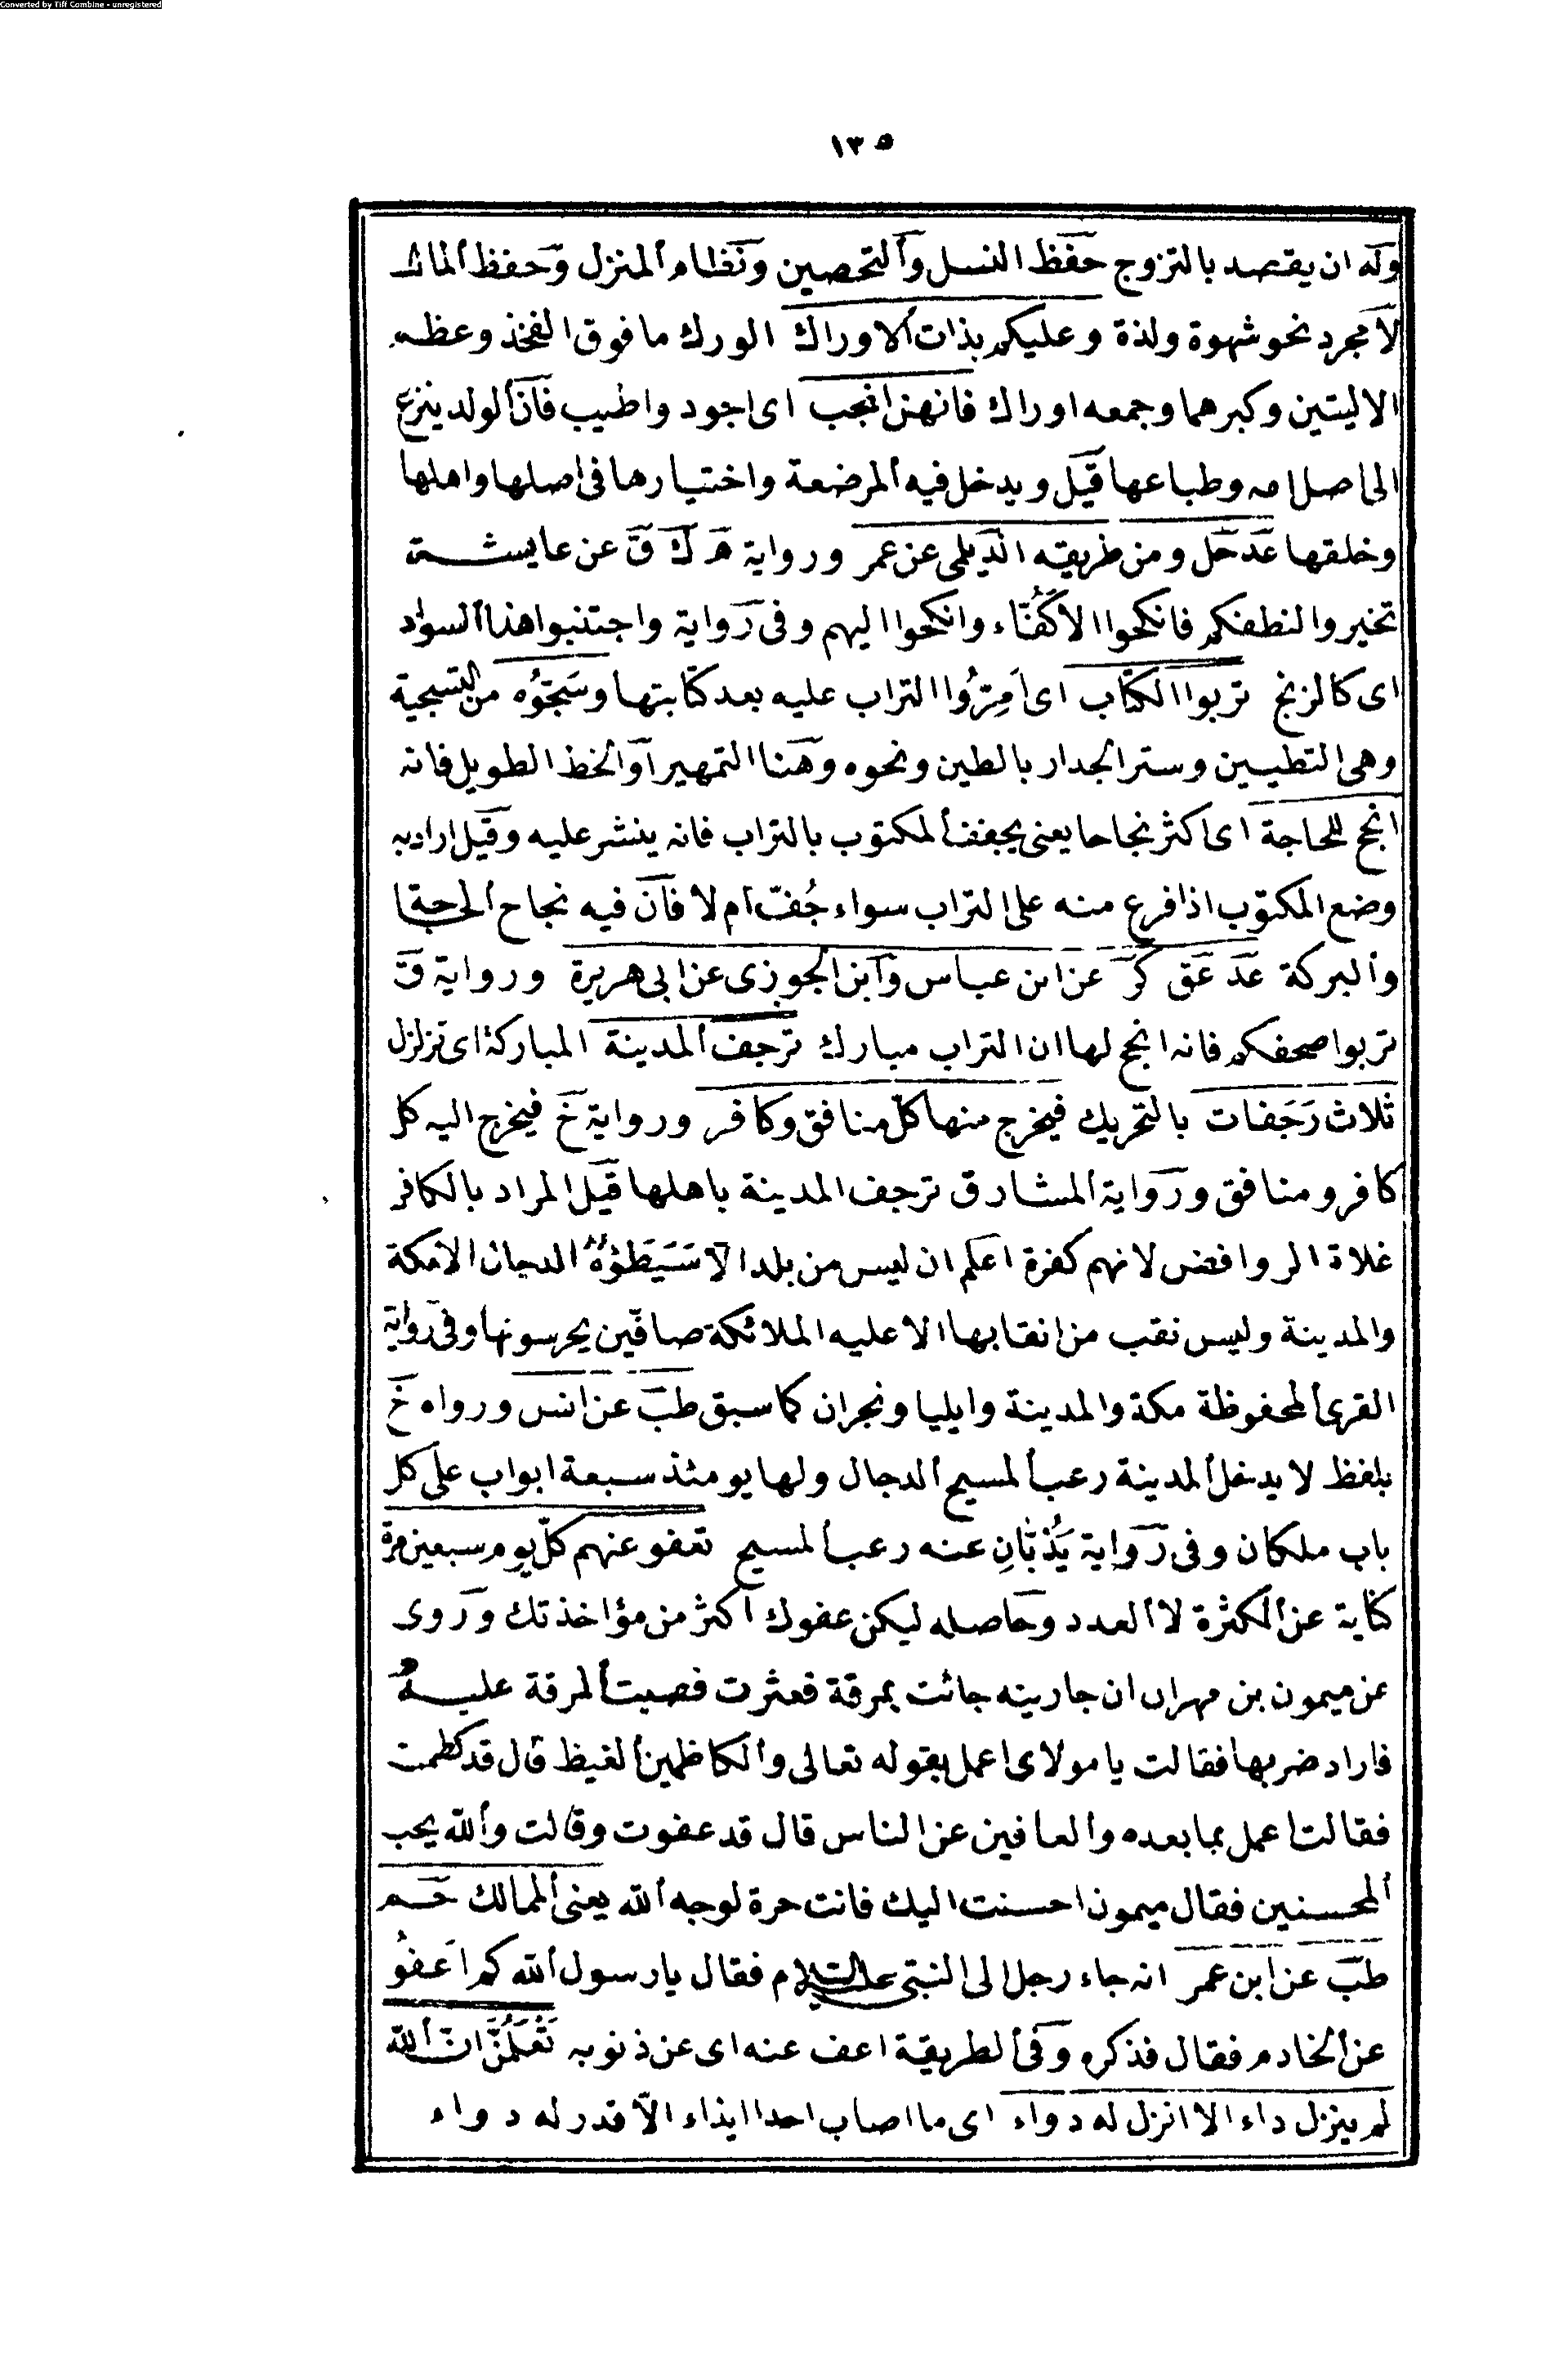 Converted by Tiff Combine - unregistered
١٣٥
وله ان يقصد بالتزوج حفظ النسل والتحصين ونظام المنزل وحفظ المال
لا مجرد نحو شهوة ولذة وعليكم بذات الاوراك الورك ما فوق الفخذ وعظم
الاليتين وكبرهما وجمعه اوراك فانهن انجب اى اجود واطيب فان الولد ينزع
الى اصل امه وطباعها قيل ويدخل فيه المرضعة واختيارها فى اصلها واهلها
وخلقها عد حل ومن طريقه الديلمى عن عمر ورواية هـ ك ق عن عايشة
تخيروا لنطفكم فانكحوا الاكفاء وانكحوا اليهم وفى رواية واجتنبوا هذا السواد
اى كالزنج تربوا الكتاب اى اَمِرُّوا التراب عليه بعد كتابتها وسَجُّوُه من التسجية
وهى التطيين وستر الجدار بالطين ونحوه وهنا التمهير او الخط الطويل فانه
انجح للحاجة اى اكثر نجاحا يعنى يجفف المكتوب بالتراب فانه ينشر عليه وقيل اراد به
وضع المكتوب اذا فرع منه على التراب سواء جُفّ ام لا فان فيه نجاح الحاجة
والبركة عد عق كر عن ابن عباس وابن الجوزى عن ابى هريرة ورواية ق
تربوا صحفكم فانه انجح لها ان التراب مبارك ترجف المدينة المباركة اى تزلزل
ثلاث رَجَفات بالتحريك فيخرج منها كل منافق وكافر ورواية خ فيخرج اليه كل
كافر ومنافق ورواية المشارق ترجف المدينة باهلها قيل المراد بالكافر
غلاة الروافض لانهم كفرة اعلم ان ليس من بلد الا سَيَطَؤُهُ الدجال الا مكة
والمدينة وليس نقب من انقابها الا عليه الملائكة صافين يحرسونها وفى رواية
القرى المحفوظة مكة والمدينة وايليا ونجران كما سبق طب عن انس ورواه خ
بلفظ لا يدخل المدينة رعب المسيح الدجال ولها يومئذ سبعة ابواب على كل
باب ملكان وفى رواية يَذُبَّانِ عنه رعب المسيح تعفو عنهم كل يوم سبعين مرة
كناية عن الكثرة لا العدد وحاصله ليكن عفوك اكثر من مؤاخذتك وروى
عن ميمون بن مهران ان جاريته جائت بمرقة فعثرت فصبت المرقة عليه
فاراد ضربها فقالت يا مولاى اعمل بقوله تعالى والكاظمين الغيظ قال قد كظمت
فقالت اعمل بما بعده والعافين عن الناس قال قد عفوت وقالت والله يحب
المحسنين فقال ميمون احسنت اليك فانت حرة لوجه الله يعنى الممالك حم
طب عن ابن عمر انه جاء رجل الى النبى عليه السلام فقال يا رسول الله كم اَعفوُ
عن الخادم فقال فذكره وفى الطريقة اعف عنه اى عن ذنوبه تَعْلَمُنَّ انّ الله
لم ينزل داء الا انزل له دواء اى ما اصاب احدا ايذاء الا قدر له دواء